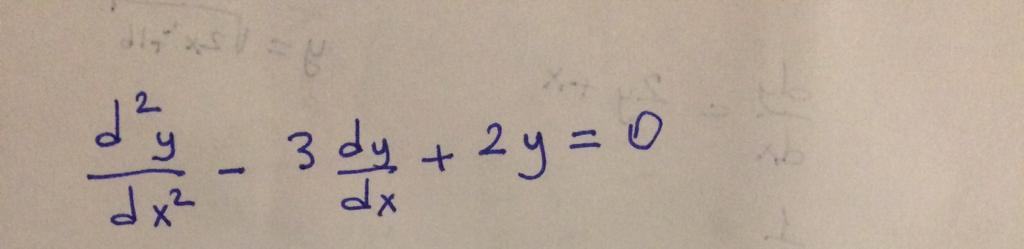 d²y/dx² - 3 dy/dx + 2y = 0